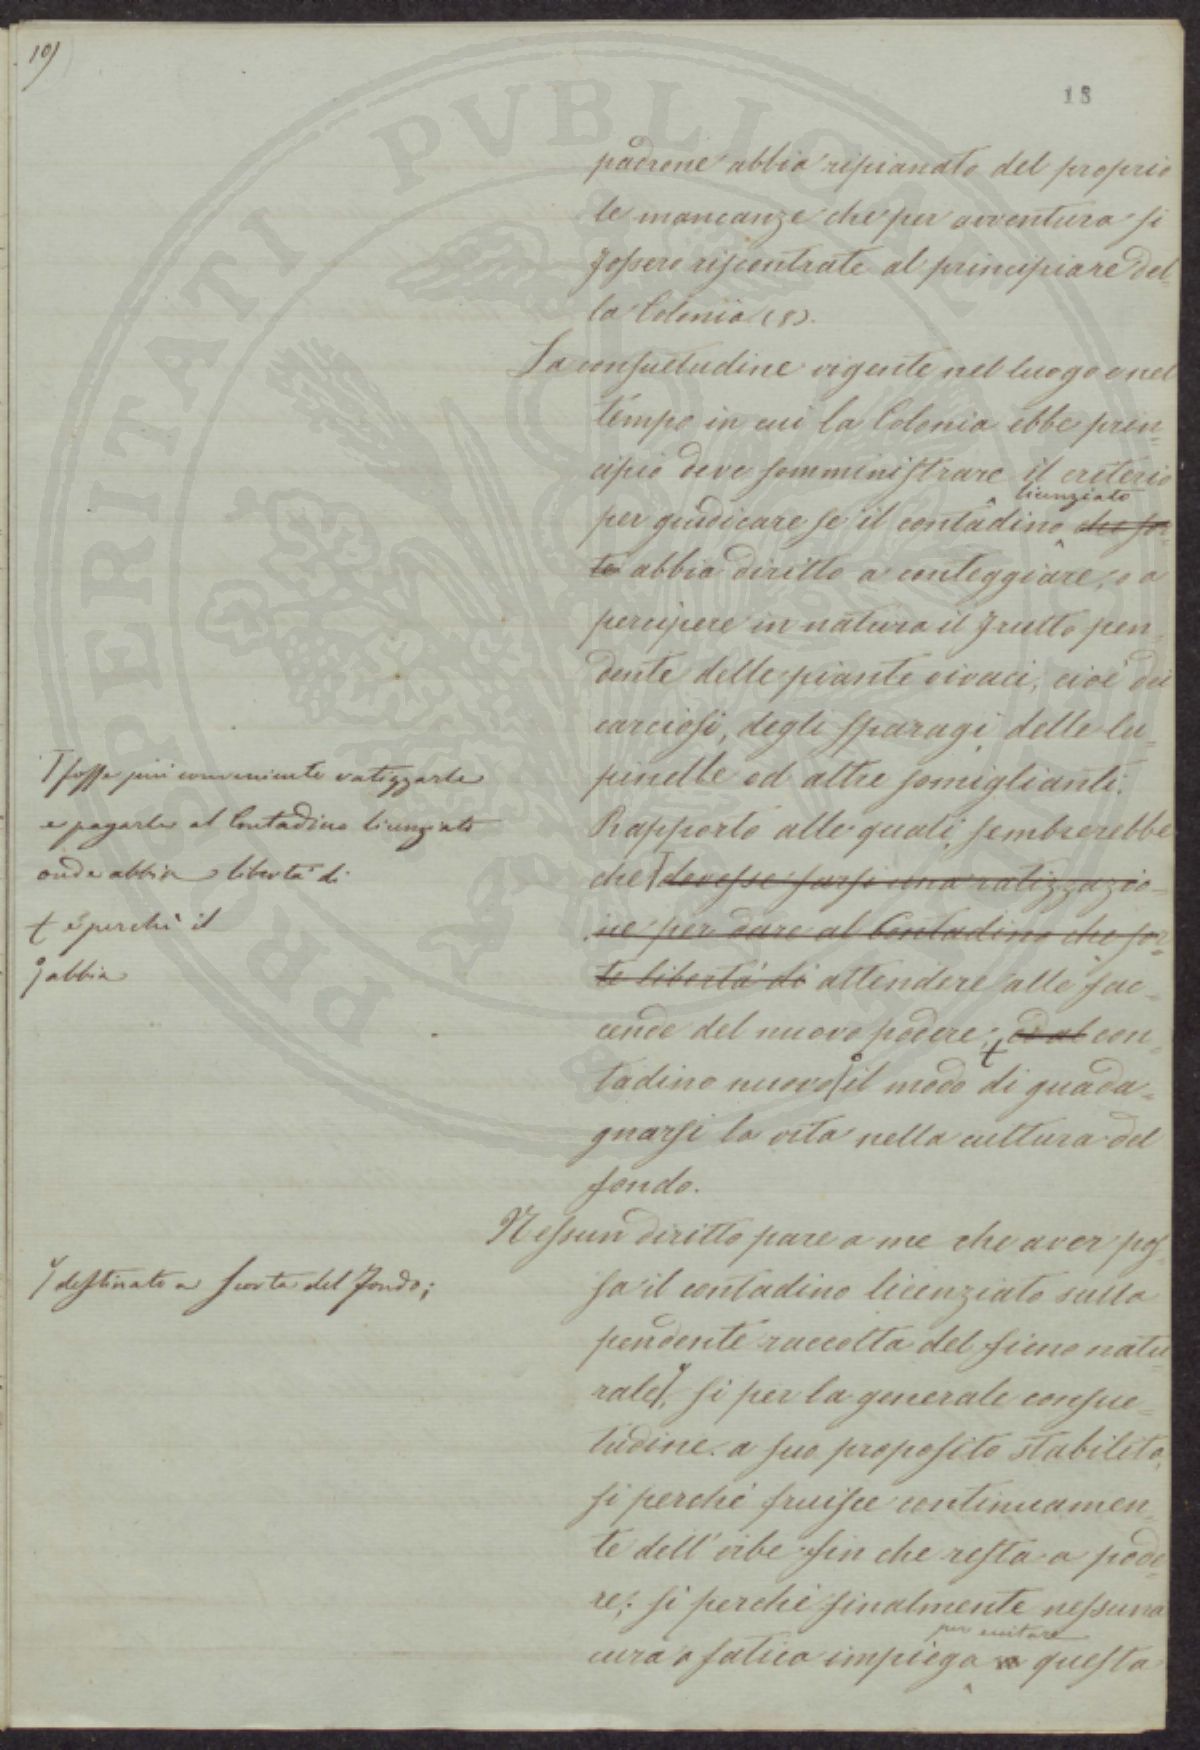 10)
18
padrone abbia ripianato del proprio
le mancanze che per avventura si
fossero riscontrate al principiare del-
la Colonia (8).
La consuetudine vigente nel luogo e nel
tempo in cui la Colonia ebbe prin-
cipio deve somministrare il criterio
licenziato
per giudicare se il contadino che sor-
te abbia diritto a conteggiare, o a
percipere in natura il frutto pen-
dente delle piante vivaci, cioè dei
carciofi, degli sparagi, delle lu-
pinelle ed altre somiglianti.
Rapporto alle quali sembrerebbe
che devesse farsi una ratizzazio-
ne per dare al Contadino che sor-
te libertà di attendere alle fac-
cende del nuovo podere; ed al con-
tadino nuovo il modo di guada-
gnarsi la vita nella cultura del
fondo.
Nessun diritto pare a me che aver pos-
sa il contadino licenziato sulla
pendente raccolta del fieno natu-
rale, si per la generale consue-
tudine a suo proposito stabilita,
si perchè fruisce continuamen-
te dell'erbe fin che resta a pode-
re; si perchè finalmente nessuna
per
cura o fatica impiega a questa
T fosse più conveniente ratizzarle
e pagarle al Contadino licenziato
onde abbia libertà di
+ e perchè il
abbia
destinato a scorta del fondo;
PROSPERITATI PVBLICAE